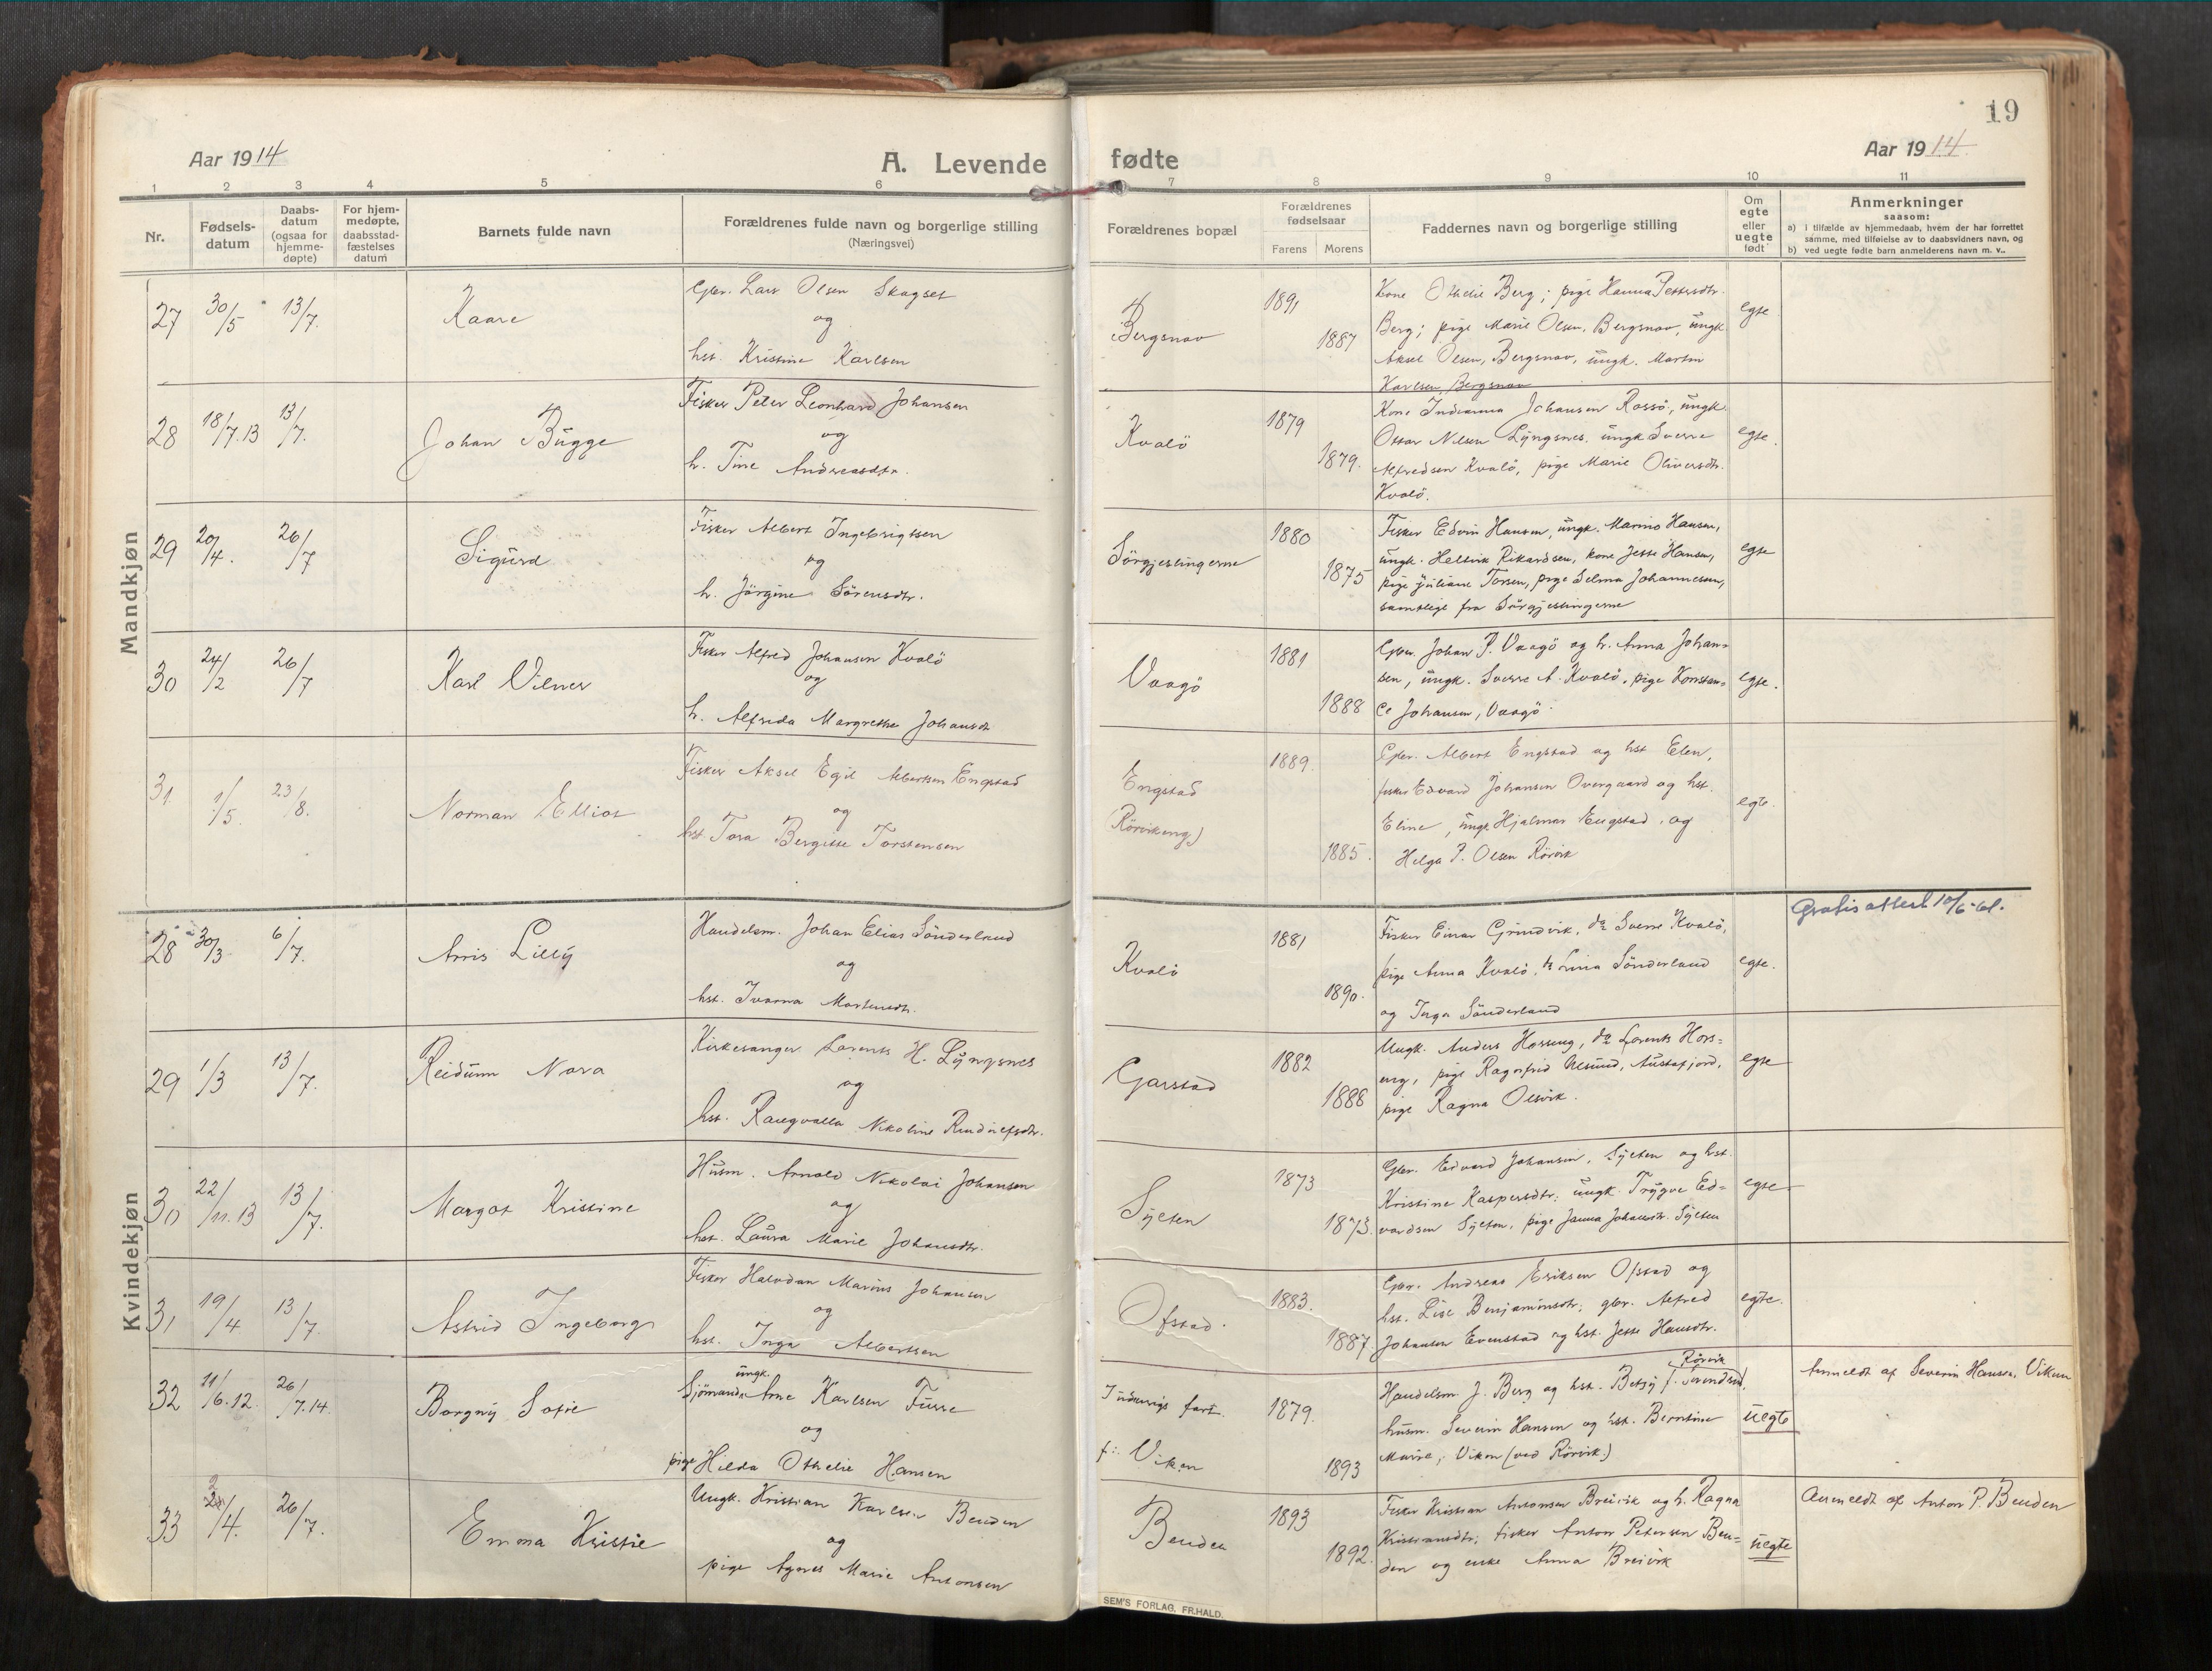 19
Aar 1914
A. Levende fødte
Aar 1914
1 2 3 4 5 6 7 8 9 10 11
Nr.
Fødsels-
datum
Daabs-
datum
(ogsaa for
hjemme-
døpte)
For hjem-
medøpte,
daabsstad-
fæstelses
datum
Barnets fulde navn
Forældrenes fulde navn og borgerlige stilling
(Næringsvei)
Forældrenes bopæl
Forældrenes
fødselsaar
Farens Morens
Faddernes navn og borgerlige stilling
Om
egte
eller
uegte
født
Anmerkninger
saasom:
a) i tilfælde av hjemmedaab, hvem der har forrettet
samme, med tilføielse av to daabsvidners navn, og
b) ved uegte fødte barn anmelderens navn m. v..
Mandkjøn
27 30/5 13/7.
Kaare
Gbr. Lars Olsen Skagset
og
hst. Kristine Karlsen
Bergsnov
1891
1887
Kone Othelie Berg; pige Hanna Pettersdtr.
Berg; pige Marie Olsen, Bergsnov, ungk.
Aksel Olsen, Bergsnov, ungk. Martin
Karlsen, Bergsnov
egte
28 18/7.13 13/7.
Johan Bügge
Fisker Peter Leonhard Johansen
og
h. Tine Andreasdtr.
Kvalö
1879
1879.
Kone Indianna Johansen Rossö, ungk.
Ottar Nilsen Lyngsnes, ungk Sverre
Alfredsen Kvalö, pige Marie Oliversdtr.
Kvalö.
egte.
29 20/4. 26/7
Sigurd
Fisker Albert Ingebrigtsen
og
h. Jörgine Sörensdtr.
Sörgjeslingerne
1880
1875
Fisker Edvin Hansen, ungk. Marino Hansen,
ungk. Heltvik Rikardsen, kone Jette Hansen,
pige Juliane Torsen, pige Selma Johannessen,
samtlige fra Sörgjeslingerne
egte
30 24/2 26/7
Karl Vilner
Fisker Alfred Johansen Kvalö
og
h. Alfrida Margrethe Johansdt
Vaagö
1881
1888
Gbr. Johan P. Vaagö og h. Anna Johan-
sen, ungk. Sverre A. Kvalö, pige Konstan-
ce Johansen, Vaagö.
egte.
31 1/5. 23/8.
Norman Elliot
Fisker Aksel Egil Albertsen Engstad
og
hst. Tora Bergitte Torstensen
Engstad
(Rörvikeng)
1889.
1885.
Gbr. Albert Engstad og hst Elen,
fisker Edvard Johansen Overgaard og hst.
Eline, ungk Hjalmar Engstad, og
Helga P. Olsen Rörvik
egte.
Kvindekjøn
28 30/3 6/7.
Anis Lilly
Handelsm. Johan Elias Sönderland
og
hst. Ivarna Martinsdtr.
Kvalö
1881
1890.
Fisker Einar Grindvik, do Sverre Kvalö,
pige Anna Kvalö, do Lina Sönderland
og Inga Sönderland
egte.
Gratis attest 10/6-61.
29 1/3 13/7.
Reidunn Nora
Kirkesanger Lorents H. Lyngsnes
og
hst. Rangvalla Nikoline Rudolfsdtr.
Garstad
1882
1888
Ungk. Anders Horseng, do Lorents Hors-
eng, pige Ragnfrid Alsund, Austafjord,
pige Ragna Olsvik.
egte
30 22/11.13 13/7.
Margot Kristine
Husm. Arnold Nikolai Johansen
og
hst. Laura Marie Johansdtr.
Sylten
1873
1873.
Gbr. Edvard Johansen, Sylten og hst.
Kristine Kaspersdtr; ungk. Trygve Ed-
vardsen Sylten, pige Janna Johansdtr. Sylten
egte
31 19/4 13/7.
Astrid Ingeborg
Fisker Halvdan Marius Johansen
og
hst. Inga Albertsen
Ofstad.
1883.
1887
Gbr. Andreas Eriksen Ofstad og
hst. Lise Benjaminsdtr; gbr. Alfred
Johansen Evenstad og hst. Jette Hansdtr.
egte.
32 11/6.12. 26/7.14.
Borgny Sofie
ungk.
Sjömand Arne Karlsen Furre
og
pige Hilda Othelie Hansen
Indenrigs fart.
f: Viken
1879.
1893
Rörvik
Handelsm. J. Berg og hst. Betsy f. Svendsen,
husm. Severin Hansen og hst. Berntine
Marie; Viken (ved Rörvik)
uegte
Anmeldt af Severin Hansen, Viken
33 2/4. 26/7.
Emma Kristie
Ungk. Kristian Karlsen Benden
og
pige Agnes Marie Antonsen
Benden
1893
1892.
Fisker Kristian Antonsen Breivik og h. Ragna
Kristiansdtr; fisker Anton Petersen Ben-
den og enke Anna Breivik
uegte
Anmeldt af Anton P. Benden
SEM'S FORLAG, FR.HALD.